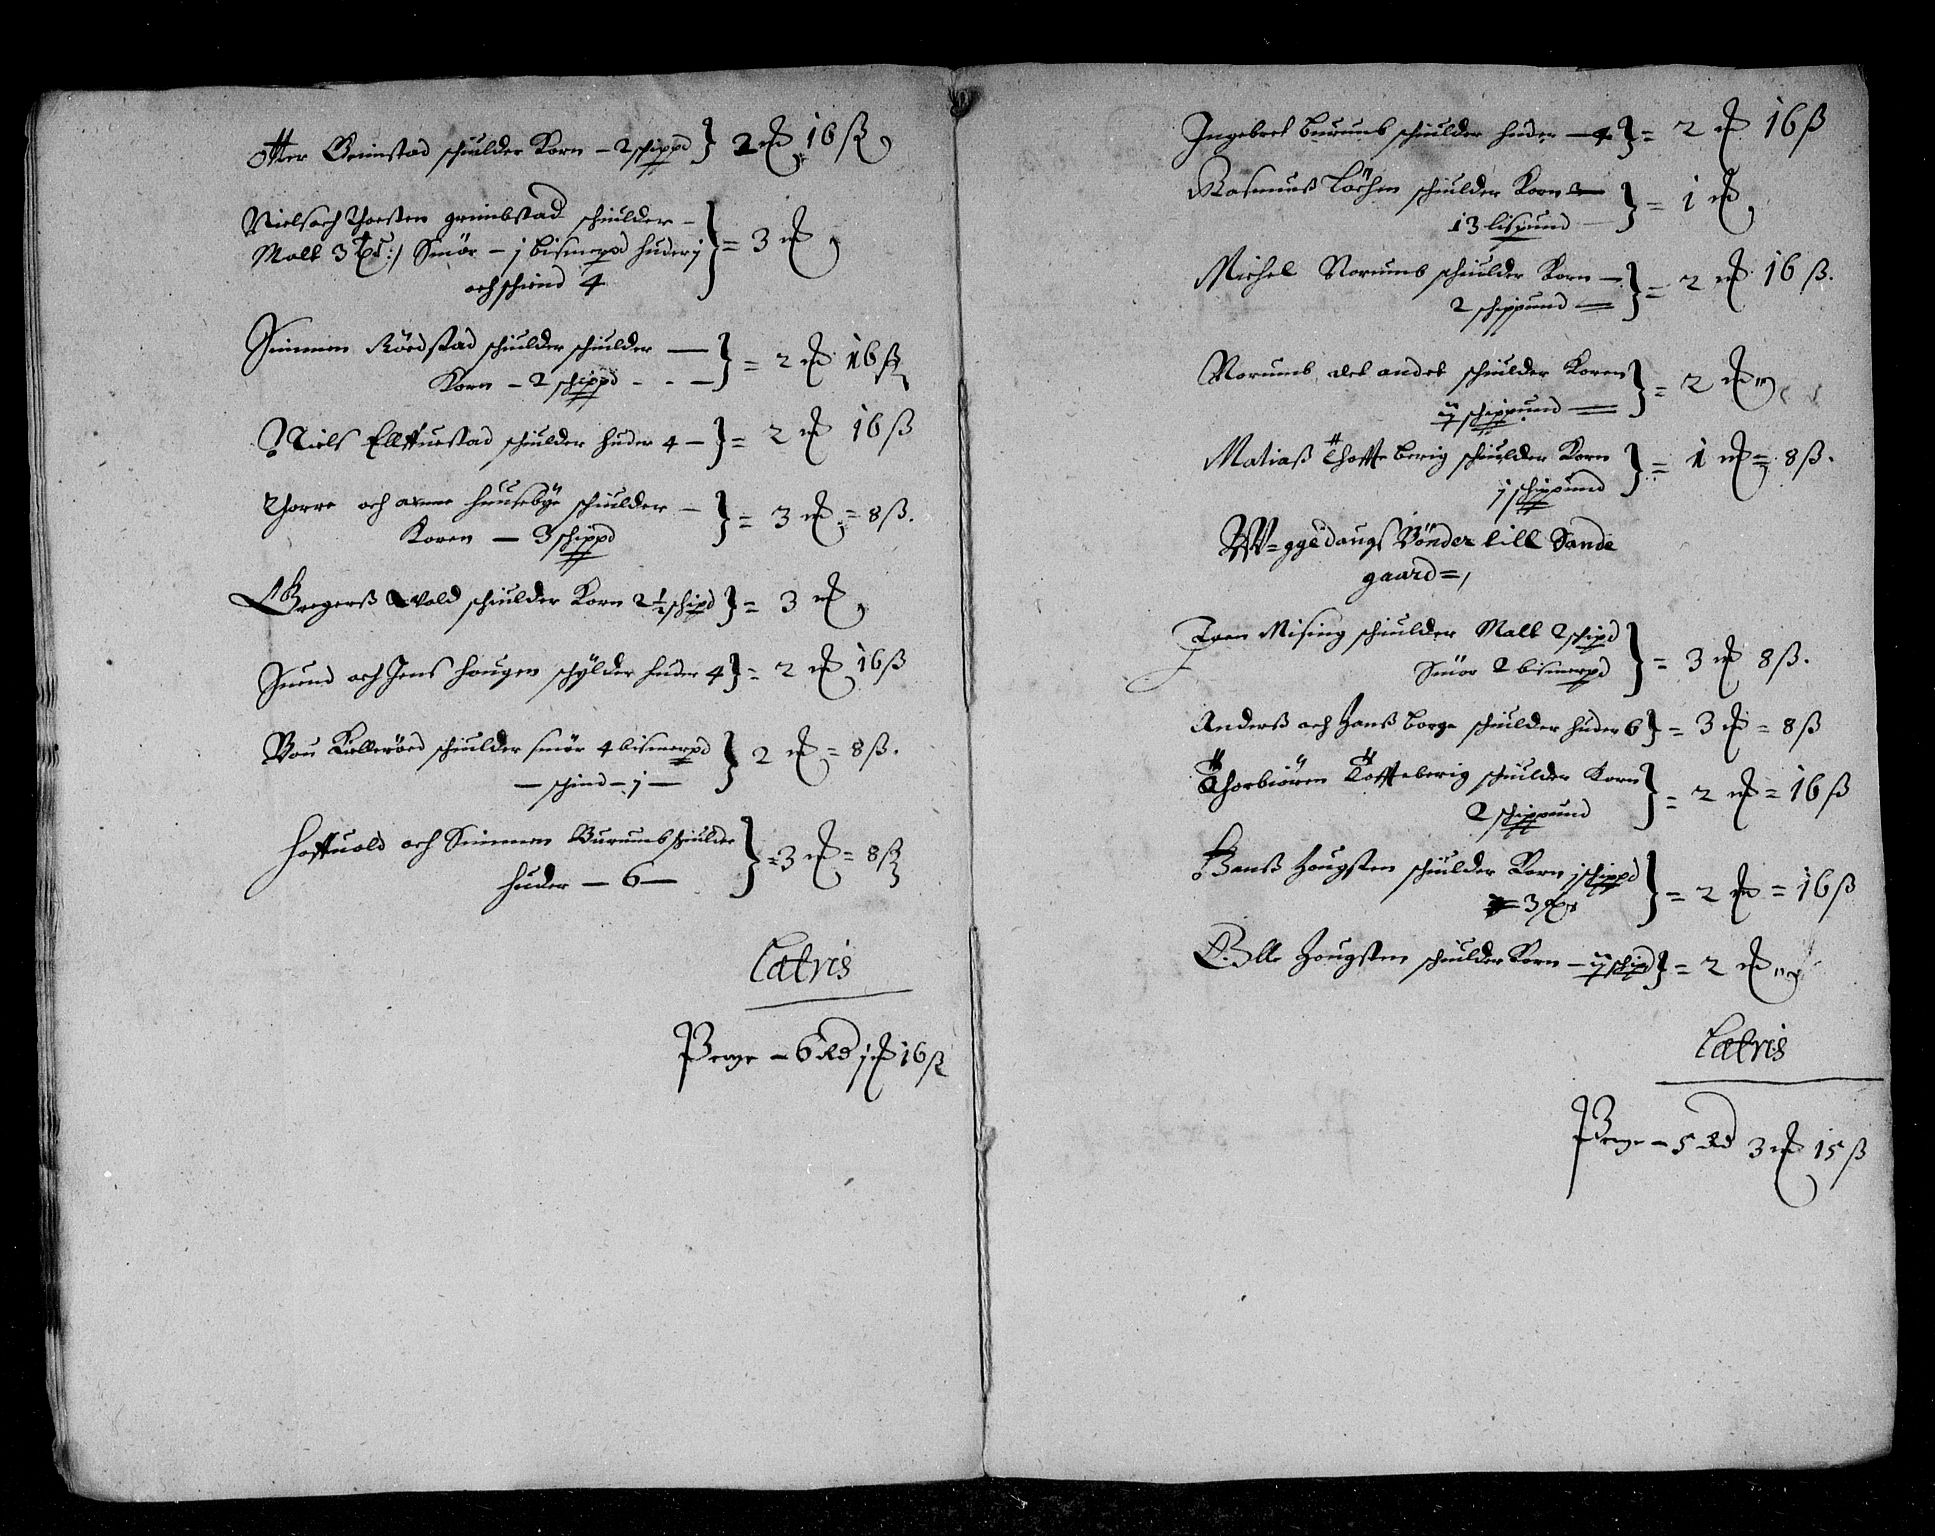 Otter Grimstad schiulder Korn – 2 schippd } 2 mk 16 ß
Niels och Thorsten grimbstad schiulder –
Malt 3 :/ Smör – j bismerpd huder j } = 3 mk
och schind 4
Simmen Röedstad schiulder schiulder —
Korn – 2 schippd - - — } = 2 mk 16 ß
Niels Ellffuestad schiulder huder 4 – } = 2 mk 16 ß
Thorre och arne huusebye schiulder –
Koren – 3 schippd } = 3 mk = 8 ß.
Gregerß Qvold schiulder Korn 2 ½ schipd } = 3 mk
Suend och Jens Hougen schylder huder 4 } = 2 mk 16 ß
Bou Kielleröed schiulder smör 4 bismerpd
– schind – j – } 2 mk = 8 ß.
Hoffuold och Simmen Burumb schiulder
huder – 6 – } = 3 mk = 8 ß
Latris
Penge – 6 Rd j mk 16 ß
Ingebret burumb schiulder huder – 4 } = 2 mk 16 ß
Rasmuß Löchen schiulder Korn —
13 lispund — } = 1 mk
Michel Norumb schiulder Korn —
2 schippund — } = 2 mk 16 ß.
Norumb det andet schiulder Koren
ij schippund — } = 2 mk
Matiaß Thoffteberig schiulder Korn
j schippund } = 1 mk = 8 ß.
W=ggedaugs Bönder till Sande
gaard =,
Iven Mising schiulder Malt 2 schipd
Smör 2 bismerpd } = 3 mk 8 ß.
Anderß och Hanß borge schiulder huder 6 } = 3 mk = 8 ß
Thorbiören Toffteberig schiulder Korn
2 schippund } = 2 mk = 16 ß
Hanß Hougsten schiulder Korn j schippd
= 3 } = 2 mk = 16 ß
Olle Hougsten schiulder Korn – ij schipd } = 2 mk
Latris
Penge – 5 Rd 3 mk 15 ß